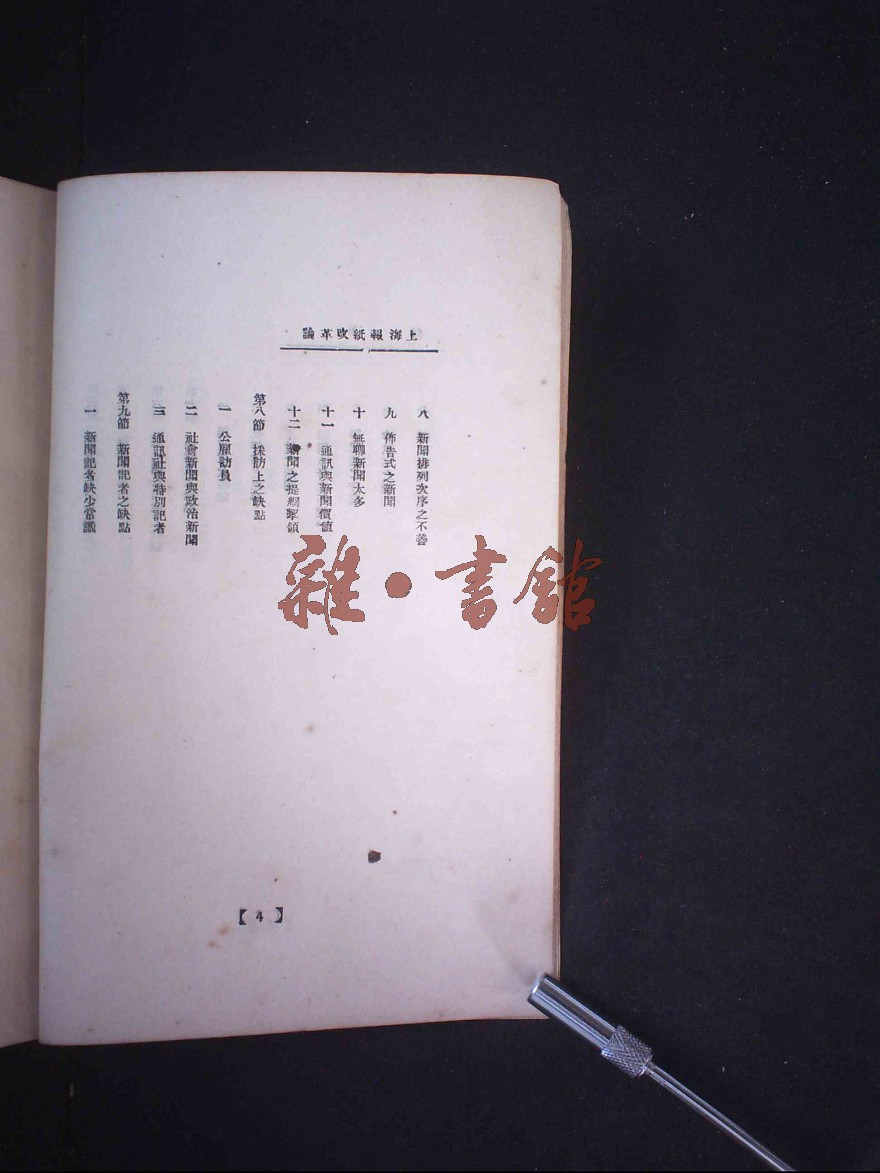 上海報紙改革論
八　新聞排列次序之不善
九　佈告式之新聞
十　無聊新聞太多
十一　通訊與新聞價值
十二　新聞之提綱挈領
第八節　採訪上之缺點
一　公雇訪員
二　社會新聞與政治新聞
三　通訊社與特別記者
第九節　新聞記者之缺點
一　新聞記者缺少常識
【4】
雜·書館